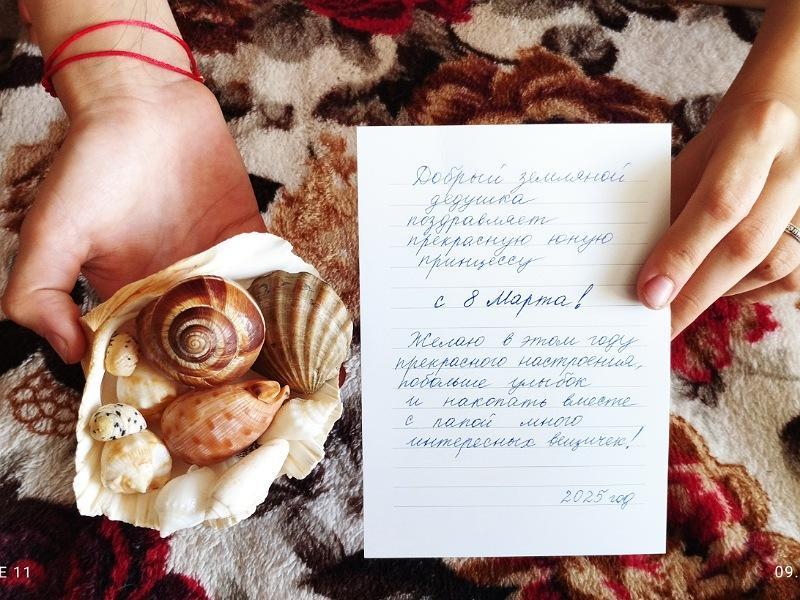 Добрый земляной
дедушка
поздравляет
прекрасную юную
принцессу
с 8 Марта!
Желаю в этом году
прекрасного настроения,
побольше улыбок
и накопать вместе
с папой много
интересных вещичек!
2025 год
E 11
09.